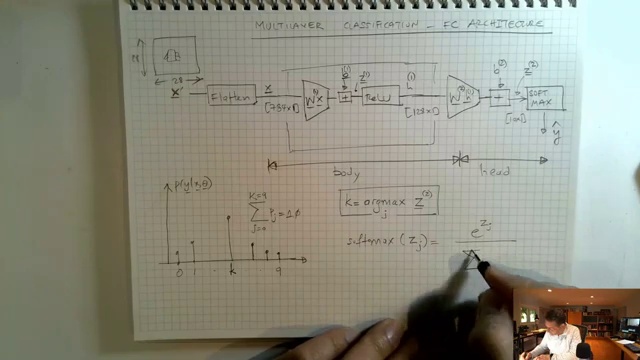 MULTILAYER CLASSIFICATION - FC ARCHITECTURE
28
28
x
Flatten
x
[784x1]
W⁽¹⁾x
b⁽¹⁾
+
z⁽¹⁾
ReLU
h⁽¹⁾
[128x1]
W⁽²⁾h⁽¹⁾
b⁽²⁾
+
z⁽²⁾
[10x1]
SOFT
MAX
ŷ
body
head
p(y|x,θ)
K=9
∑ Pⱼ=1.0
j=0
0 1 K 9
K = argmax z⁽²⁾
j
softmax (zⱼ) = e^zⱼ
∑